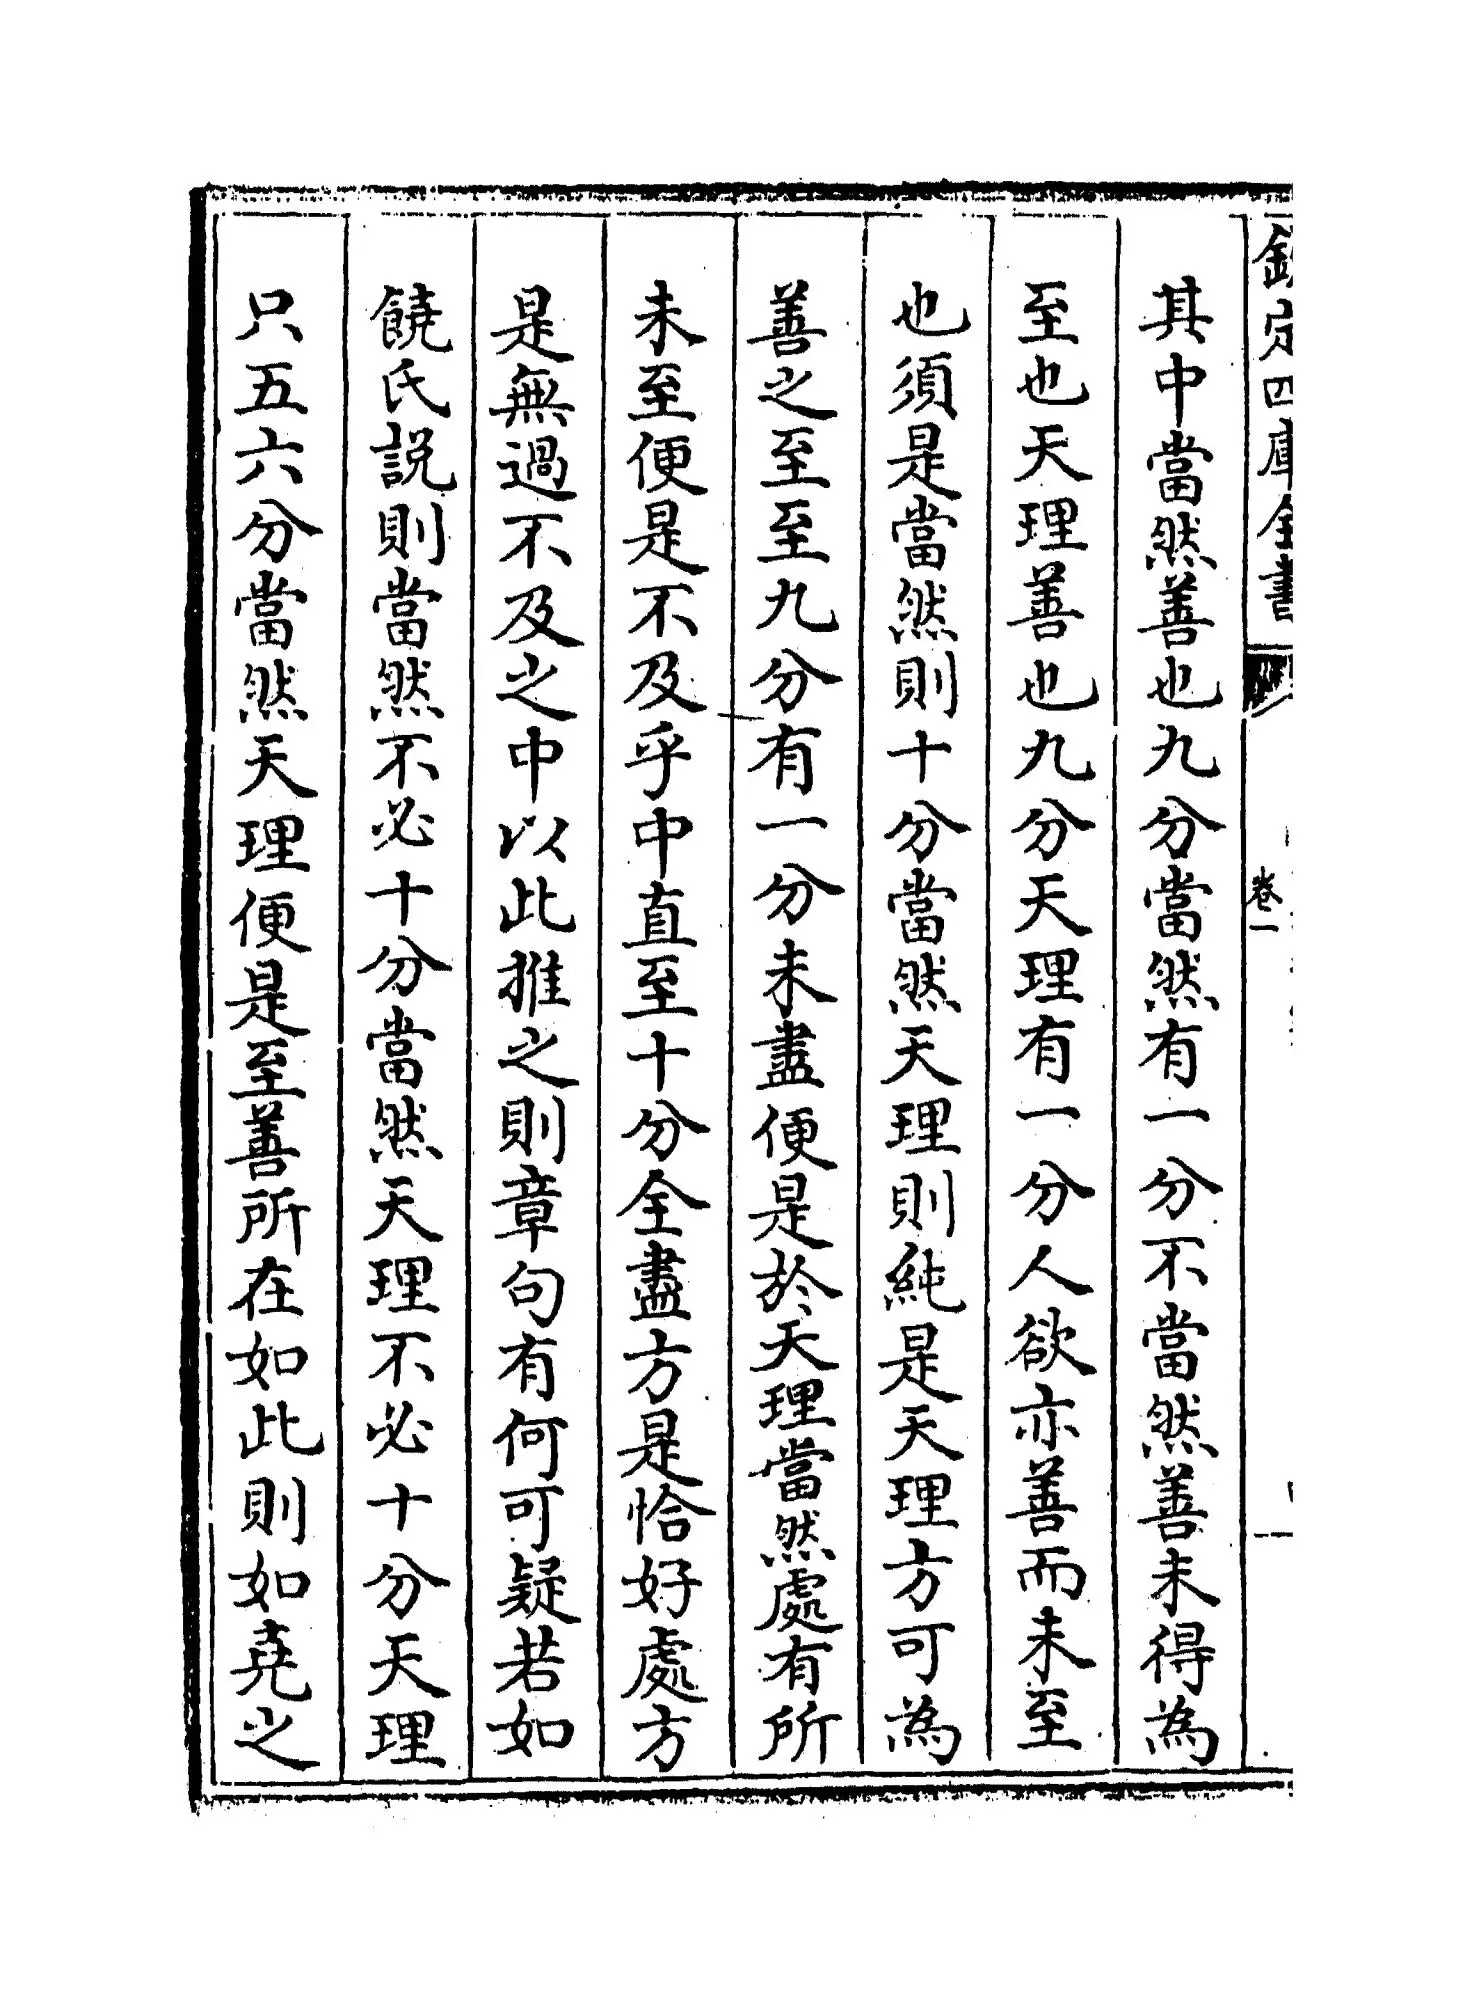 欽定四庫全書
卷一
其中當然善也九分當然有一分不當然善未得為
至也天理善也九分天理有一分人欲亦善而未至
也須是當然則十分當然天理則純是天理方可為
善之至至九分有一分未盡便是於天理當然處有所
未至便是不及乎中直至十分全盡方是恰好處方
是無過不及之中以此推之則章句有何可疑若如
饒氏説則當然不必十分當然天理不必十分天理
只五六分當然天理便是至善所在如此則如堯之